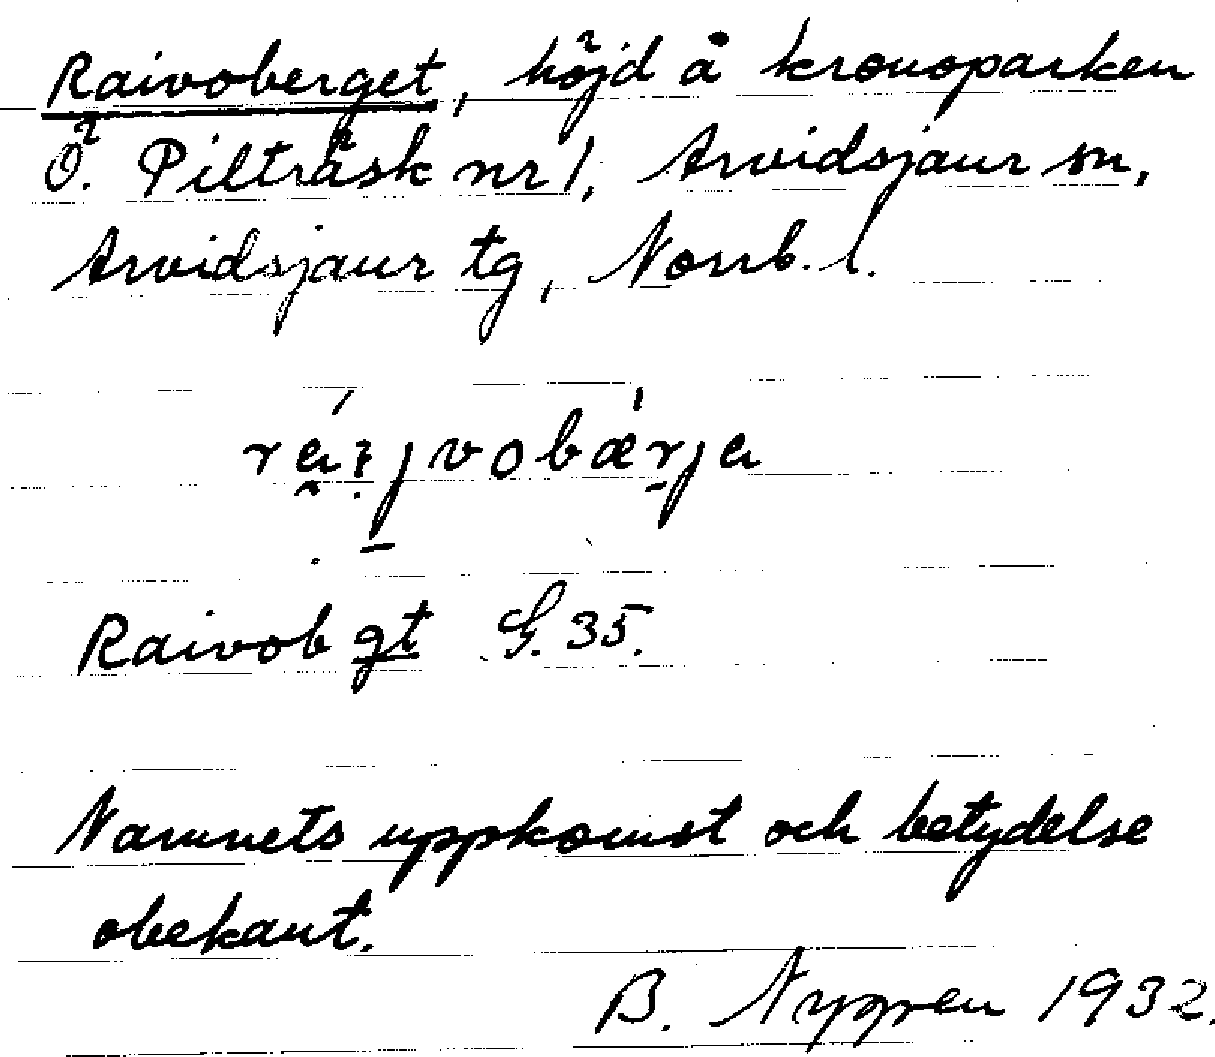 Raivoberget, höjd å kronoparken
Ö. Pilträsk nr 1, Arvidsjaur sn,
Arvidsjaur tg, Norrb. l.
Raivobgt G. 35.
Namnets uppkomst och betydelse
obekant.
B. Nygren 1932.